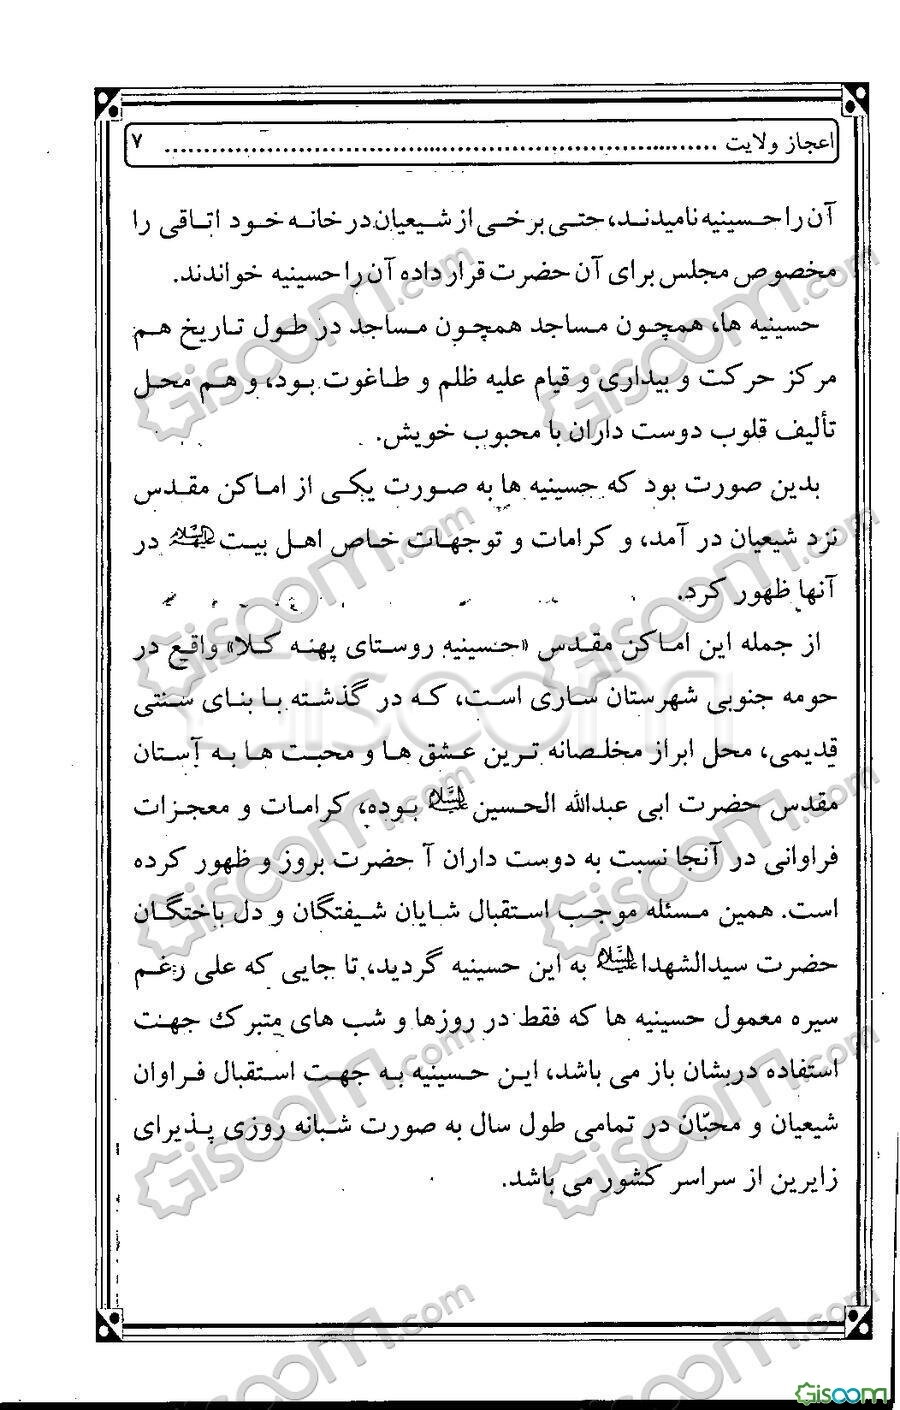 اعجاز ولایت ........................................................................ ۷
آن را حسینیه نامیدند، حتی برخی از شیعیان در خانه خود اتاقی را
مخصوص مجلس برای آن حضرت قرار داده آن را حسینیه خواندند.
حسینیه ها، همچون مساجد همچون مساجد در طول تاریخ هم
مرکز حرکت و بیداری و قیام علیه ظلم و طاغوت بود، و هم محل
تألیف قلوب دوست داران با محبوب خویش.
بدین صورت بود که حسینیه ها به صورت یکی از اماکن مقدس
نزد شیعیان در آمد، و کرامات و توجهات خاص اهل بیت علیهم السلام در
آنها ظهور کرد.
از جمله این اماکن مقدس «حسینیه روستای پهنه کلا» واقع در
حومه جنوبی شهرستان ساری است، که در گذشته با بنای سنتی
قدیمی، محل ابراز مخلصانه ترین عشق ها و محبت ها به آستان
مقدس حضرت ابی عبدالله الحسین علیه السلام بوده، کرامات و معجزات
فراوانی در آنجا نسبت به دوست داران آ حضرت بروز و ظهور کرده
است. همین مسئله موجب استقبال شایان شیفتگان و دل باختگان
حضرت سیدالشهدا علیه السلام به این حسینیه گردید، تا جایی که علی رغم
سیره معمول حسینیه ها که فقط در روزها و شب های متبرک جهت
استفاده دربشان باز می باشد، این حسینیه به جهت استقبال فراوان
شیعیان و محبّان در تمامی طول سال به صورت شبانه روزی پذیرای
زایرین از سراسر کشور می باشد.
Giscoom.com
Giscoom